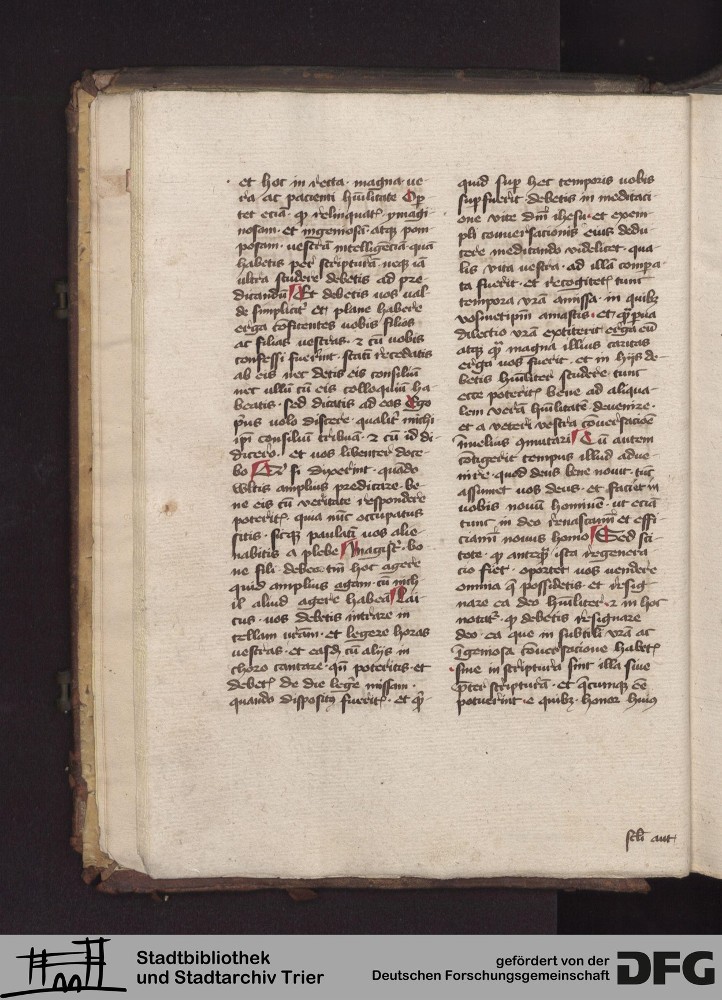 et hoc in recta · magna ue-
ra ac pacienti hūilitate Op̄
tet eciā · ꝙ relinquatꝭ ymagi
nosam · et ingeniosā atqꝫ pom
posam · uestrā intelligēciā quā
habetis per scripturā · neqꝫ iā
ultra studere debetis ad pre
dicandū Et debetis uos ual-
de simplicitꝭ et plane habere
erga cōfitentes uobis filios
ac filias uestras · ⁊ cū uobis
confessi fuerint · statī recedatis
ab eis nec detis eis consiliū
nec ullū cū eis colloquiū ha
beatis · sed dicatis ad eos Ego
prius uolo discere · qualitꝭ michi
ip̄i consiliū tribuā · ⁊ cū id di-
dicero · et uos libenter doce-
bo Et si dixerint · quādo
uultis amplius predicare · be
ne eis cū veritate respondere
poteritꝭ · quia nūc occupatus
sitis · sicqꝫ paulatī uos alie-
nabitis a plebe Magistꝭ · bo
ne fili · debeo tm̄ hoc agere
quid amplius agam · cū nich
il aliud agere habeā Lai
cus · uos debetis intrare in
cellam urām · et legere horas
uestras · et easdē cū alijs in
choro cantare · qn̄ poteritis · et
debetꝭ de die legꝭe missam ·
quando dispositꝰ fueritꝭ · et qꝫ-
quid suꝑ hec temporis uobis
suꝑfuerit · debetis in meditaci
one vite dn̄i ihesu · et exem
pli conuersacionis eius dedu
cere meditando videlicet · qua-
lis vita uestra · ad illā compa-
ta fuerit · et recogitetꝭ tunc
tempora vrā amissa · in quibꝫ
vosmetip̄m amastis · et qꝫ pua
dilectio vrā extiterit erga eū
atqꝫ qꝫ magna illius caritas
erga vos fuerit · et in hijs de-
betis hūiliter studere · tunc
ecce poteritꝭ bene ad aliqua-
lem verā hūilitatē deuenire ·
et a veteri vestra cōuersacioē
ī melius ꝯmutari Cū autem
cōtigerit tempus illud adue-
nire · quod deus bene nouit · tūc
assumet uos deus · et faciet in
uobis nouū hominem · ut eciā
tunc in deo renascamī et effi-
ciamī nouus homo Sed sci-
tote · ꝙ anteqꝫ ista regenera
cio fiet · oportet uos uendere
omnia q̄ possidetis · et resig
nare ea deo hūilitꝭ · ⁊ in hoc
notatꝭ · ꝙ debetis resignare
deo · ea que in subtili vrā ac
īgeniosa cōuersacione habetꝭ
· siue in scriptura sint illa siue
p̄ter scripturā · et q̄cumqꝫ eē
potuerint · e quibꝫ · honor huiꝰ
scl̄i aut
Stadtbibliothek
und Stadtarchiv Trier
gefördert von der
Deutschen Forschungsgemeinschaft
DFG